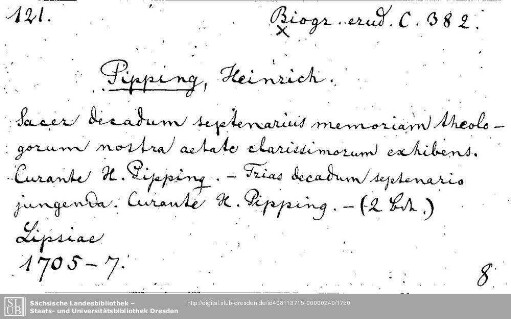 121.
Biogr. erud. C. 382.
X
Pipping, Heinrich.
Sacer decadum septenarius memoriam theolo-
gorum nostra aetate clarissimorum exhibens.
Curante H. Pipping. – Trias decadum septenario
jungenda. Curante H. Pipping. – (2 Bde.)
Lipsiae
1705–7.
8
SLUB
Sächsische Landesbibliothek –
Staats- und Universitätsbibliothek Dresden